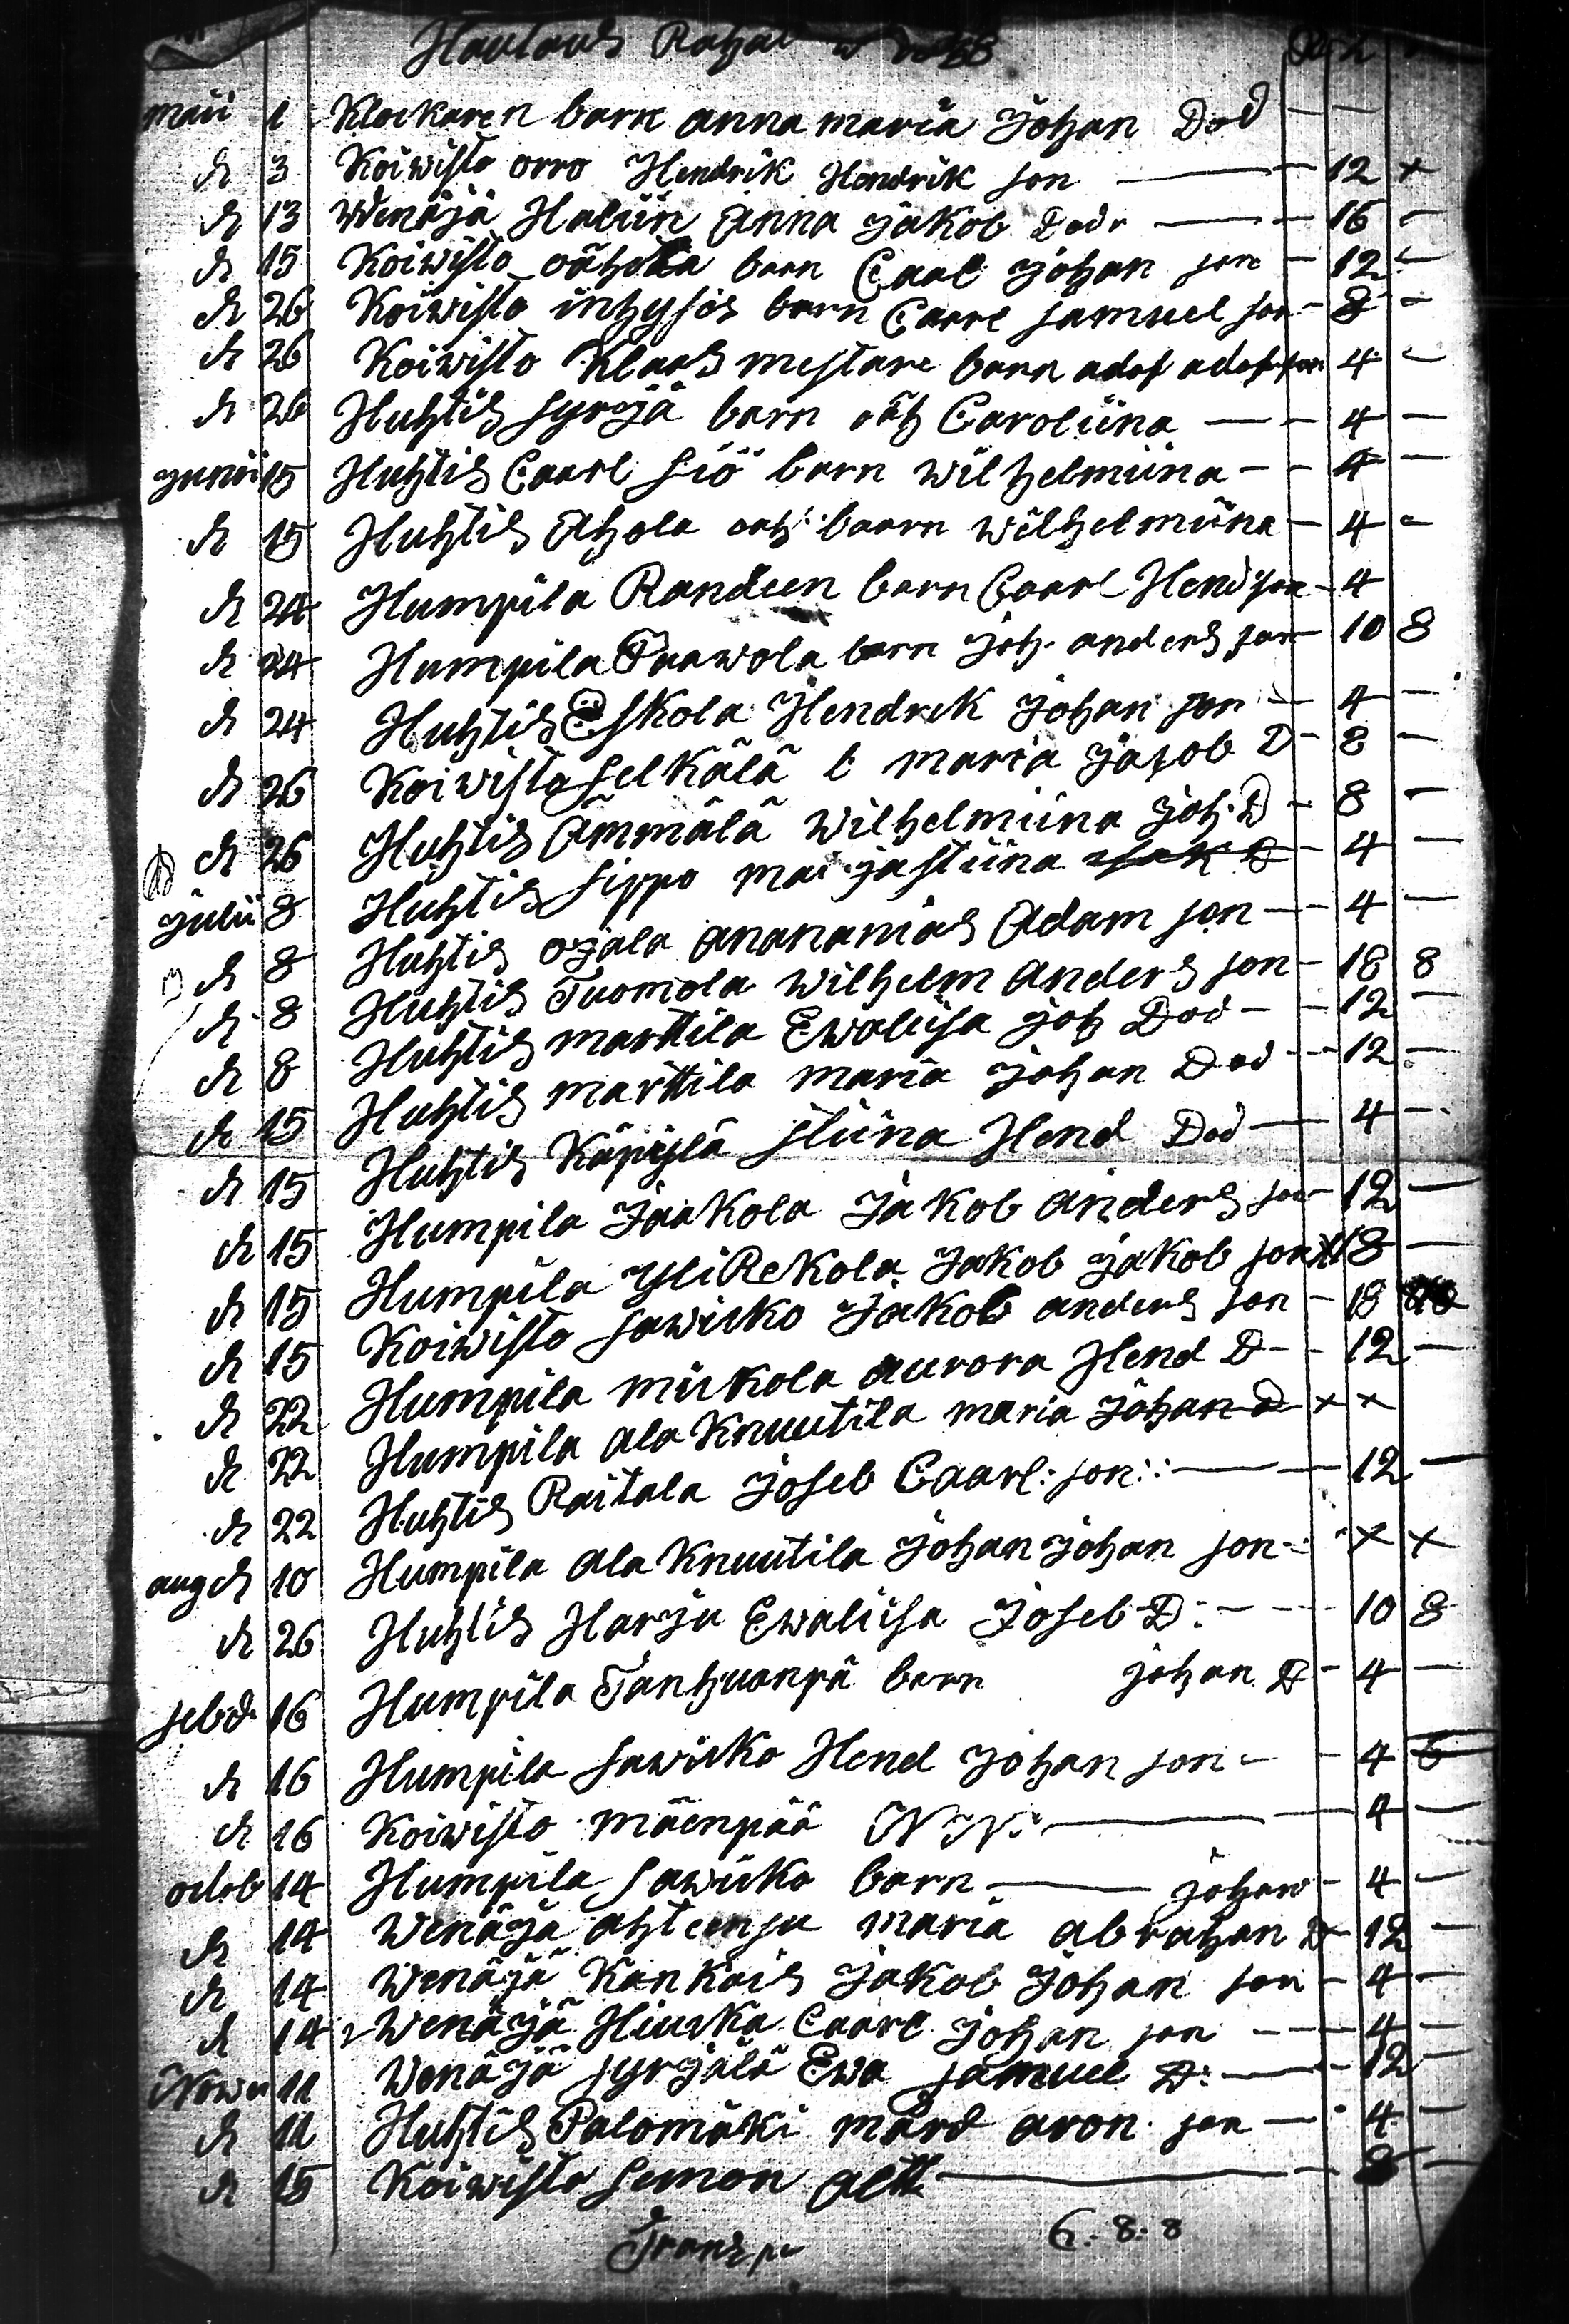 Hautaus Rahat
maii 1 Klockaren barn anna maria Johan Dod — —
dt 3 Koiwisto orro Hendrik Hendrik son — 12 x
dt 13 Wenäjä Haliin Anna Jakob Dodr — 16 —
dt 15 Koiwisto barn Caal Johan son — 12 —
dt 26 Koiwisto inhysis barn Carre samuel son — 8 —
dt 26 Koiwisto Klaas mestare barn adof adof son 4 —
dt 26 Huhtis syrjä barn oäh Caroliina — 4 —
Junii 15 Huhtis Caarl siö barn wilhelmiina — 4 —
dt 15 Huhtis Ahola oäh: baarn wilhelmiina — 4 —
dt 24 Humpila Randeen barn Caarl Hend son — 4
dt 24 Humpila Taawola barn joh. anders son — 10 8
dt 24 Huhtis Eskola Hendrek Johan son — 4 —
dt 26 Koiwisto selkälä b maria Jajob D — 8 —
dt 26 Huhtis Ämmälä wilhelmiina joh. D — 8 —
Julii 8 Huhtis sippo mai jastiina — 4 —
dt 8 Huhtis ojala ananamias Adam son — 4 —
dt 8 Huhtis Tuomola wilhelm anders son — 18 8
dt 8 Huhtis marttila Ewaliisa joh Dod — 12 —
dt 15 Huhtis marttila maria johan Dod — 12 —
dt 15 Huhtis Käpylä stiina Hend Dod — 4 —
dt 15 Humpila Jaakola Jakob anders son — 12 —
dt 15 Humpila YliRekola Jakob jakob son 18 —
dt 15 Koiwisto sawiiko Jakob anders son — 18
dt 22 Humpila miikola aurora Hend D — 12 —
dt 22 Humpila ala Knuutila maria Johan D x x
dt 22 Huhtis Raitala Joseb Caarl: son: — 12 —
aug dt 10 Humpila ala Knuutila Johan Johan son — x x
dt 26 Huhtis Harju Ewaliisa Joseb D: — 10 8
sebd 16 Humpila Tanhuanpä barn johan D — 4 —
dt 16 Humpila sawiiko Hend Johan son — 4
dt 16 Koiwisto mäenpää N N: — 4 —
octob 14 Humpila sawiiko barn — johan — 4 —
dt 14 Wenäjä ahteensu maria abrahan D — 12 —
dt 14 Wenäjä Kankais Jakob Johan son — 4 —
dt 14 Wenäjä Hiuska Caarl Johan son — 4 —
Nowe 11 Wenäjä syrjälä Ewa samuel D: — 12 —
dt 11 Huhtis Palomäki mård aron son — 4 —
dt 15 Koiwisto semon — 8 —
Transp 6:8:8